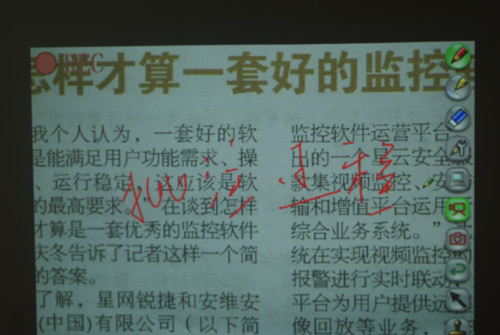 怎样才算一套好的监控
我个人认为，一套好的软
是能满足用户功能需求、操
、运行稳定，这应该是软
的最高要求。”在谈到怎样
才算是一套优秀的监控软件
庆冬告诉了记者这样一个简
的答案。
了解，星网锐捷和安维安
(中国)有限公司（以下简
监控软件运营平台
出的一个星云安全服
集视频监控、安
输和增值平台运用
综合业务系统。”
统在实现视频监控的
报警进行实时联动
平台为用户提供远
像回放等业务
过程